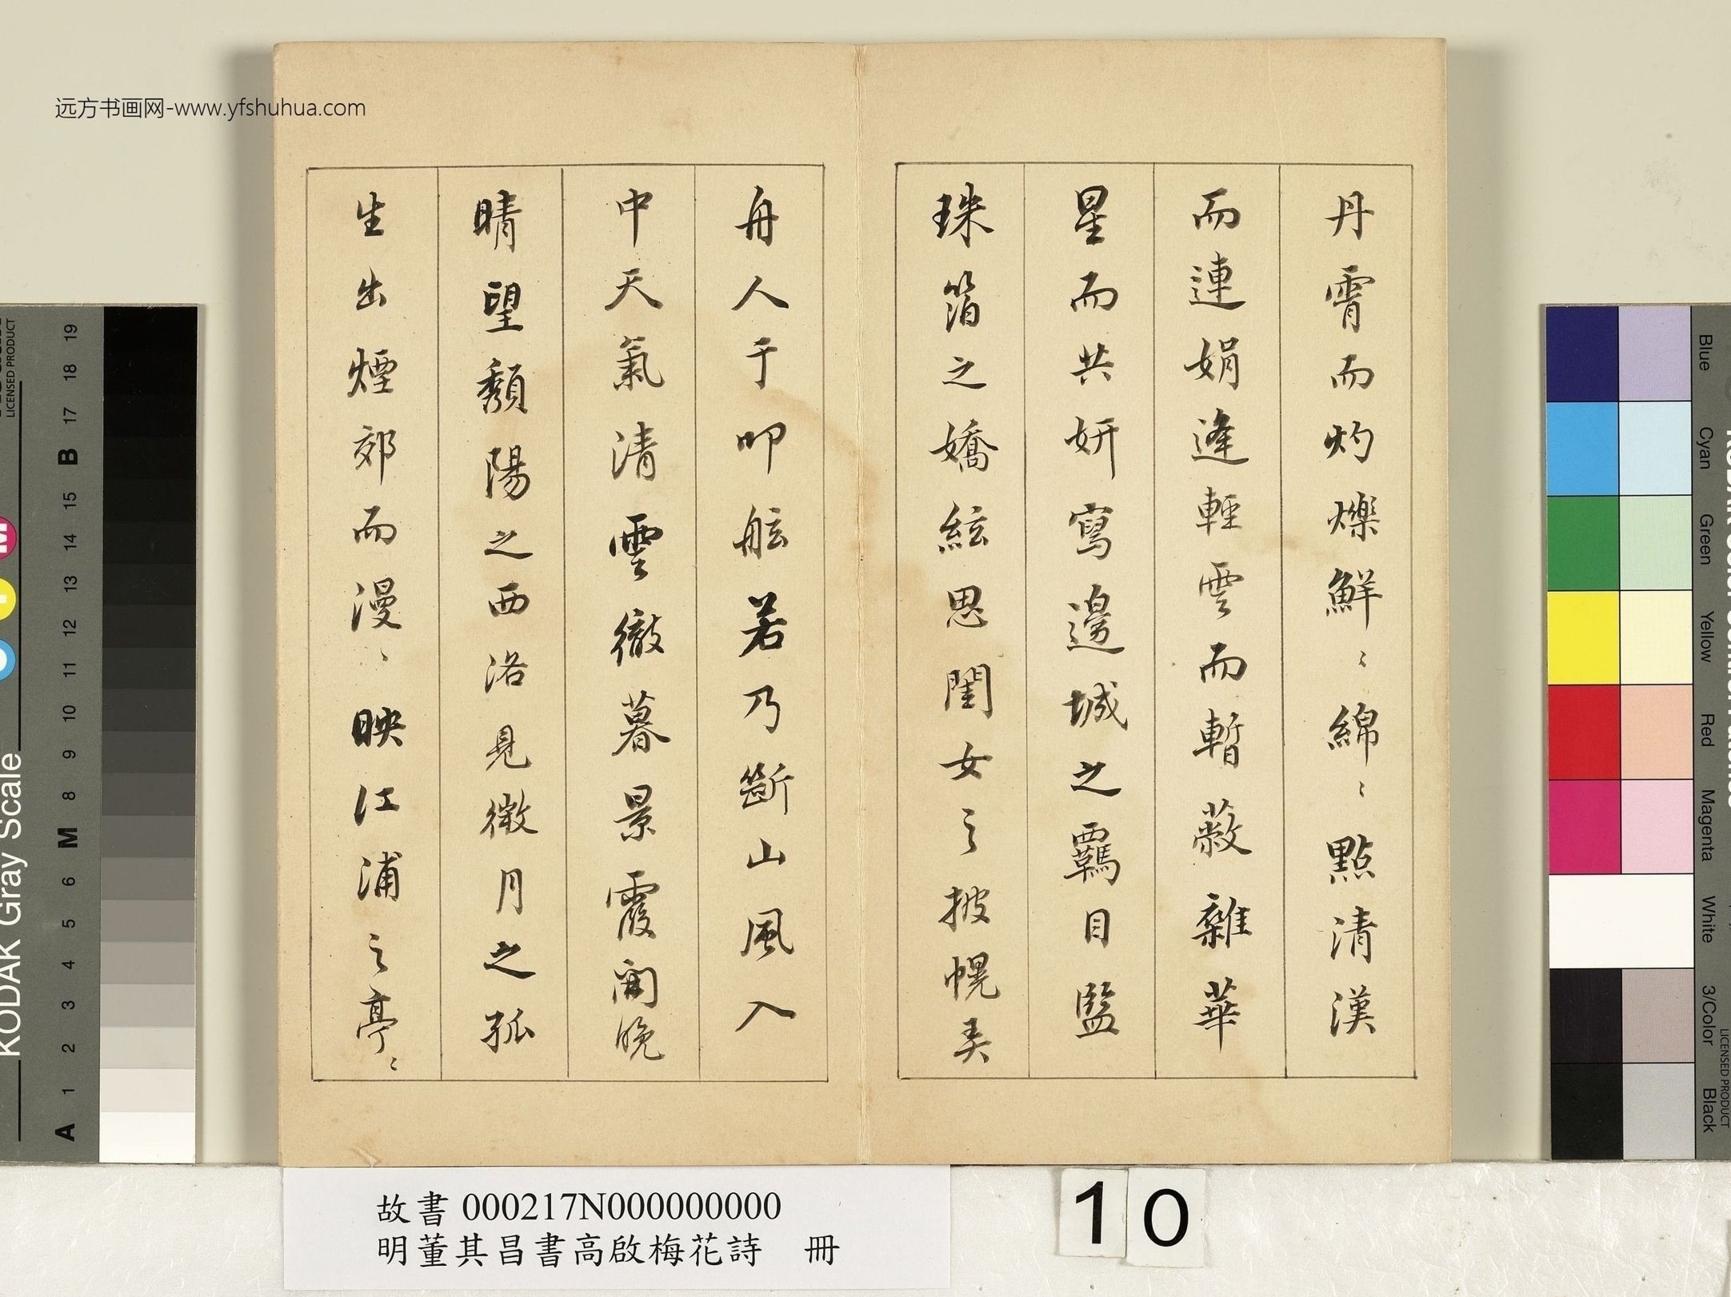 远方书画网-www.yfshuhua.com
丹霄而灼爍鮮〻綿〻點清漢
而連娟逢輕雲而暫蔽雜華
星而共妍寫邊城之羈目監
珠箔之嬌絃思閨女之披幌美
舟人于叩舷若乃斷山風入
中天氣清雲徹暮景霞開晚
晴望頹陽之西洛見微月之孤
生出煙郊而漫〻映江浦之亭〻
故書 000217N000000000
明董其昌書高啟梅花詩 冊
10
KODAK Gray Scale
LICENSED PRODUCT
A 1 2 3 4 5 6 M 8 9 10 11 12 13 14 15 B 17 18 19
Blue
Cyan
Green
Yellow
Red
Magenta
White
3/Color
Black
LICENSED PRODUCT